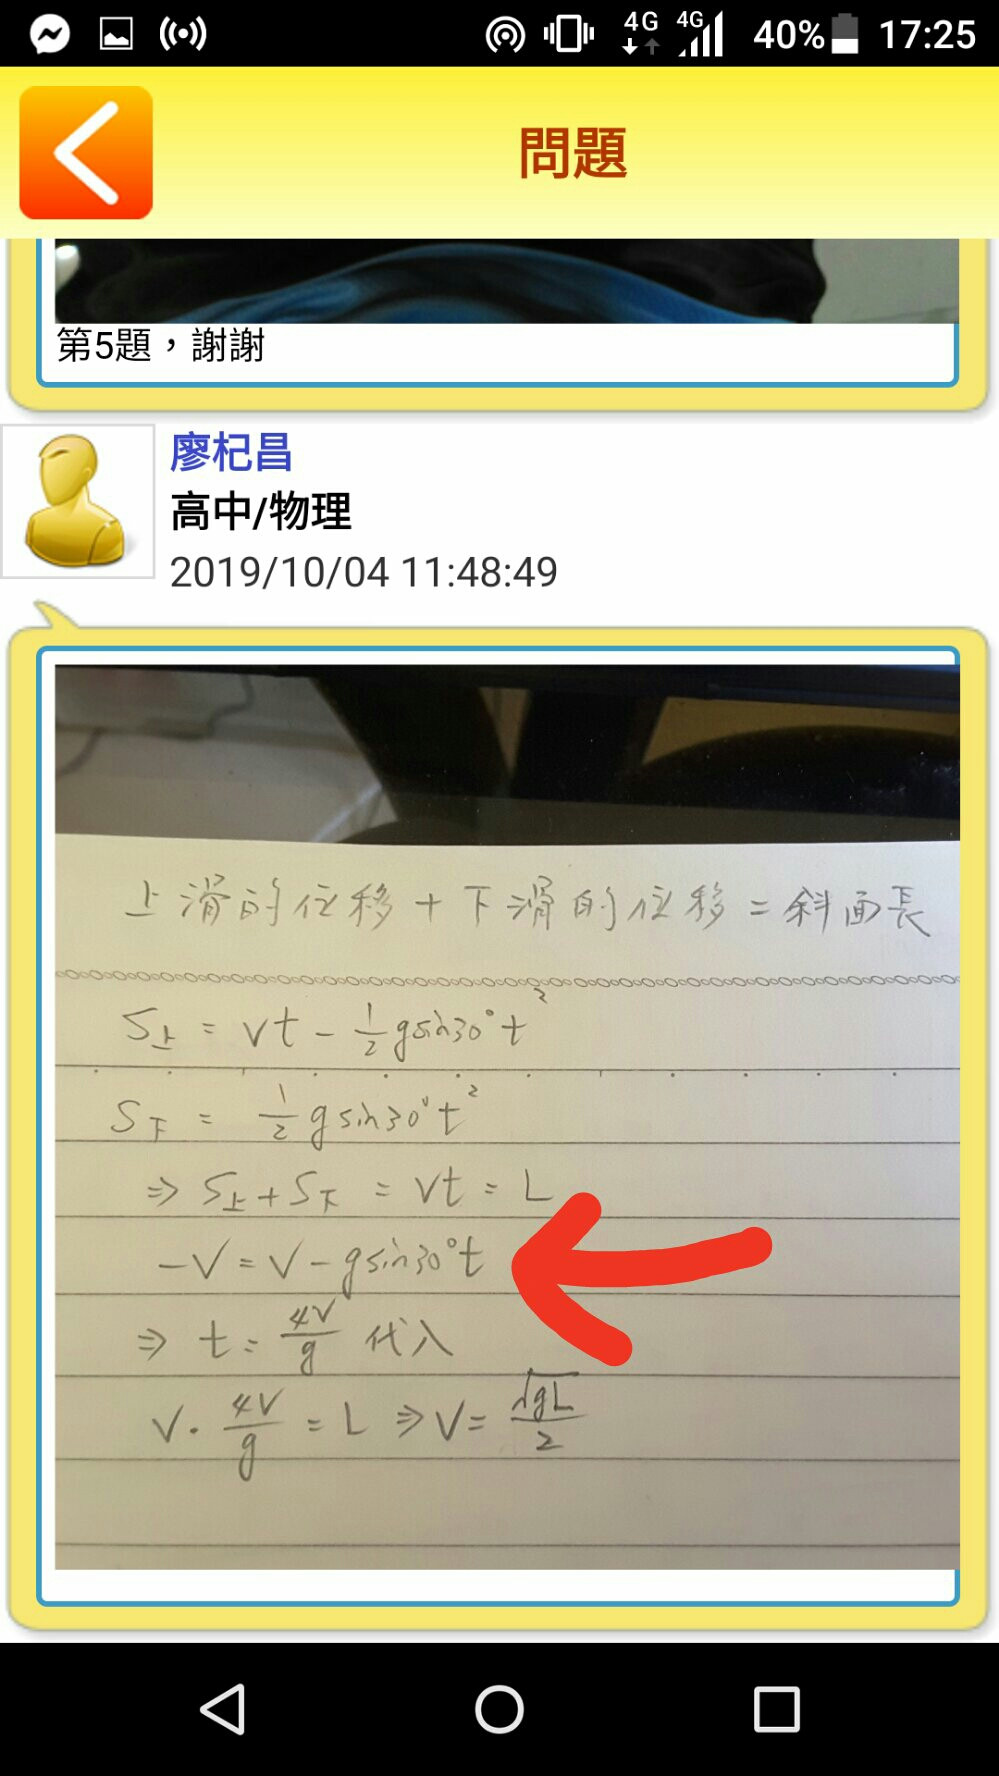 4G 4G 40% 17:25
問題
第5題，謝謝
廖杞昌
高中/物理
2019/10/04 11:48:49
上滑的位移+下滑的位移=斜面長
S上 = vt - 1/2 g sin30° t²
S下 = 1/2 g sin30° t²
⇒ S上 + S下 = vt = L
-V = V - g sin30° t
⇒ t = 4V/g 代入
V · 4V/g = L ⇒ V = √gL/2